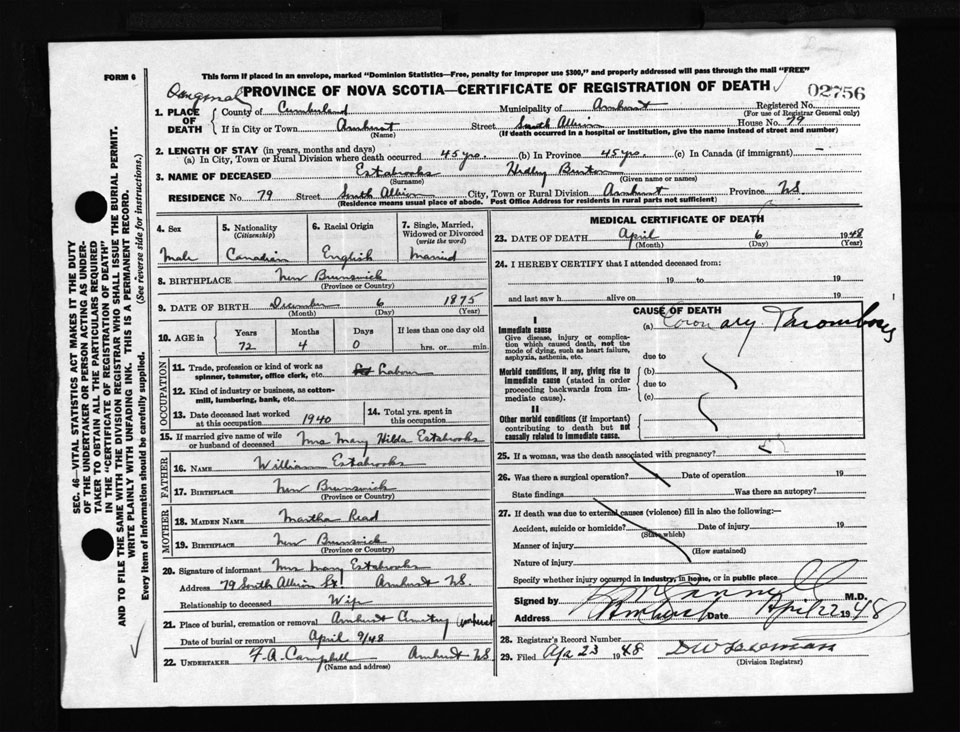 FORM 6
This form if placed in an envelope, marked "Dominion Statistics—Free, penalty for improper use $300," and properly addressed will pass through the mail "FREE"
Original
PROVINCE OF NOVA SCOTIA—CERTIFICATE OF REGISTRATION OF DEATH
02756
1. PLACE OF DEATH County of Cumberland Municipality of Amherst Registered No.
(For use of Registrar General only)
If in City or Town Amherst Street South Albion House No. 79
(Name) (If death occurred in a hospital or institution, give the name instead of street and number)
2. LENGTH OF STAY (in years, months and days)
(a) In City, Town or Rural Division where death occurred 45 yrs. (b) In Province 45 yrs. (c) In Canada (if immigrant) —
3. NAME OF DECEASED Estabrooks Hedley Burton
(Surname) (Given name or names)
RESIDENCE No. 79 Street South Albion City, Town or Rural Division Amherst Province NS
(Residence means usual place of abode. Post Office Address for residents in rural parts not sufficient)
4. Sex 5. Nationality (Citizenship) 6. Racial Origin 7. Single, Married, Widowed or Divorced (write the word)
Male Canadian English Married
8. BIRTHPLACE New Brunswick
(Province or Country)
9. DATE OF BIRTH December 6 1875
(Month) (Day) (Year)
10. AGE in Years Months Days If less than one day old
72 4 0 hrs. or min.
OCCUPATION
11. Trade, profession or kind of work as spinner, teamster, office clerk, etc. Labour
12. Kind of industry or business, as cotton-mill, lumbering, bank, etc.
13. Date deceased last worked at this occupation 1940 14. Total yrs. spent in this occupation
15. If married give name of wife or husband of deceased Mrs Mary Hilda Estabrooks
FATHER
16. NAME William Estabrooks
17. BIRTHPLACE New Brunswick
(Province or Country)
MOTHER
18. MAIDEN NAME Martha Read
19. BIRTHPLACE New Brunswick
(Province or Country)
20. Signature of informant Mrs Mary Estabrooks
Address 79 South Albion St Amherst NS.
Relationship to deceased Wife
21. Place of burial, cremation or removal Amherst Cemetery Amherst
Date of burial or removal April 9/48
22. UNDERTAKER F. A. Campbell Amherst NS
(Name and address)
MEDICAL CERTIFICATE OF DEATH
23. DATE OF DEATH April 6 1948
(Month) (Day) (Year)
24. I HEREBY CERTIFY that I attended deceased from:
19 to 19
and last saw h alive on 19
CAUSE OF DEATH
I
Immediate cause (a) Coronary Thrombosis
Give disease, injury or complication which caused death, not the mode of dying, such as heart failure, asphyxia, asthenia, etc.
due to
Morbid conditions, if any, giving rise to immediate cause (stated in order proceeding backwards from immediate cause).
(b)
due to
(c)
II
Other morbid conditions (if important) contributing to death but not causally related to immediate cause.
25. If a woman, was the death associated with pregnancy?
26. Was there a surgical operation? Date of operation 19
State findings Was there an autopsy?
27. If death was due to external causes (violence) fill in also the following:—
Accident, suicide or homicide? Date of injury 19
(State which)
Manner of injury
(How sustained)
Nature of injury
Specify whether injury occurred in industry, in home, or in public place
Signed by M.D.
Address Amherst Date April 22 1948
28. Registrar's Record Number
29. Filed Apr 23 1948
(Division Registrar)
SEC. 46—VITAL STATISTICS ACT MAKES IT THE DUTY
OF THE UNDERTAKER OR PERSON ACTING AS UNDER-
TAKER TO OBTAIN ALL THE PARTICULARS REQUIRED
IN THE "CERTIFICATE OF REGISTRATION OF DEATH"
AND TO FILE THE SAME WITH THE DIVISION REGISTRAR WHO SHALL ISSUE THE BURIAL PERMIT.
WRITE PLAINLY WITH UNFADING INK. THIS IS A PERMANENT RECORD.
Every item of information should be carefully supplied. (See reverse side for instructions.)